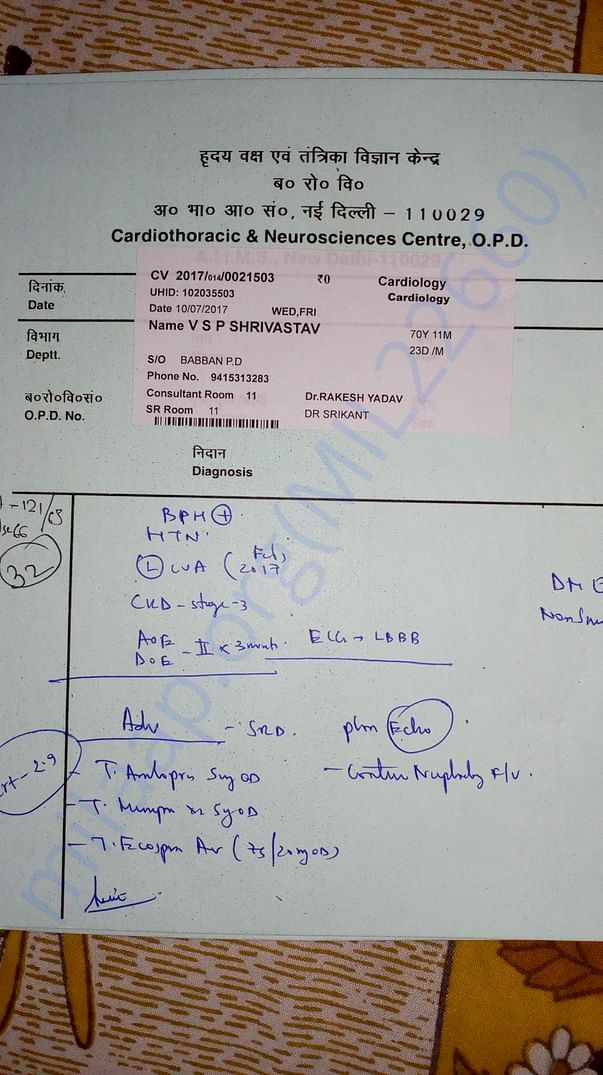 हृदय वक्ष एवं तंत्रिका विज्ञान केन्द्र
ब० रो० वि०
अ० भा० आ० सं०, नई दिल्ली - 110029
Cardiothoracic & Neurosciences Centre, O.P.D.
A.I.I.M.S., New Delhi-110029
दिनांक
Date
CV 2017/014/0021503 ₹0 Cardiology
UHID: 102035503 Cardiology
Date 10/07/2017 WED,FRI
विभाग
Deptt.
Name V S P SHRIVASTAV 70Y 11M
23D /M
S/O BABBAN P.D
Phone No. 9415313283
ब०रो०वि०सं०
O.P.D. No.
Consultant Room 11 Dr.RAKESH YADAV
SR Room 11 DR SRIKANT
निदान
Diagnosis
121/63
66
32
BPH +
HTN
L CVA (Feb, 2017
DM
CKD - stage-3
AOE
DOE - II x 3 month. ECG → LBBB
Adv - SRD. plan Echo
2.9
OD
- T. Ecosprin AV (75/20mg OD)
milaap.org(MIL22660)